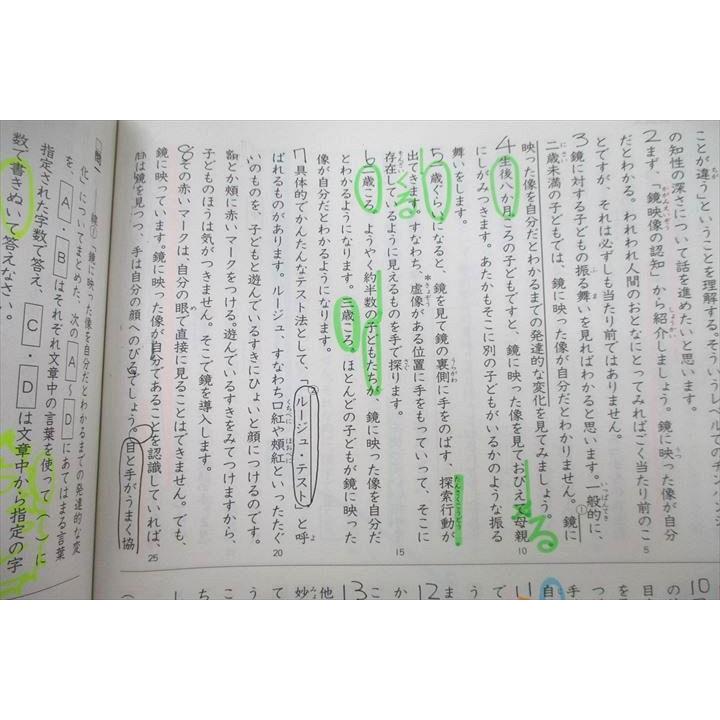 ことが違う」ということを理解する。そういうレベルのチン
の知性の深さについて話を進めたいと思います。
2まず、「鏡映像の認知」から紹介しましょう。鏡に映った像が自分
だとわかる。われわれ人間のおとなにとってみればごく当たり前のこ
とですが、それは必ずしも当たり前ではありません。
3鏡に対する子どもの振る舞いを見ればわかると思います。一般的に、
二歳未満の子どもでは、鏡に映った像が自分だとわかりません。①鏡に
映った像を自分だとわかるまでの発達的な変化を見てみましょう。
4生後八か月ころの子どもですと、鏡に映った像を見ておびえて母親
にしがみつきます。あたかもそこに別の子どもがいるかのような振る
舞いをします。
5一歳ぐらいになると、鏡を見て鏡の裏側に手をのばす、探索行動が
出てきます。すなわち、*虚像がある位置に手をもっていって、そこに
存在しているように見えるものを手で探ります。
6二歳ころ、ようやく約半数の子どもたちが、鏡に映った像を自分だ
とわかるようになります。三歳ころ。ほとんどの子どもが鏡に映った
像が自分だとわかるようになります。
7具体的でかんたんなテスト法として、「ルージュ・テスト」と呼
ばれるものがあります。ルージュ、すなわち口紅や頰紅といったたぐ
いのものを、子どもと遊んでいるすきにひょいと顔につけるのです。
額とか頰に赤いマークをつける。遊んでいるすきをみてつけますから、
子どものほうは気がつきません。そこで鏡を導入します。
8その赤いマークは、自分の眼で直接に見ることはできません。でも、
鏡に映っています。鏡に映った像が自分であることを認識していれば、
目は鏡を見つつ、手は自分の顔へのびるでしょう。目と手がうまく協
5
10
15
20
25
問一
①「鏡に映った像を自分だとわかるまでの発達的な変
化」についてまとめた、次の A ～ D にあてはまる言葉
を、A・Bはそれぞれ文章中の言葉を使って( )に
指定された字数で答え、C・Dは文章中から指定の字
数で書きぬいて答えなさい。
10
11
12
13